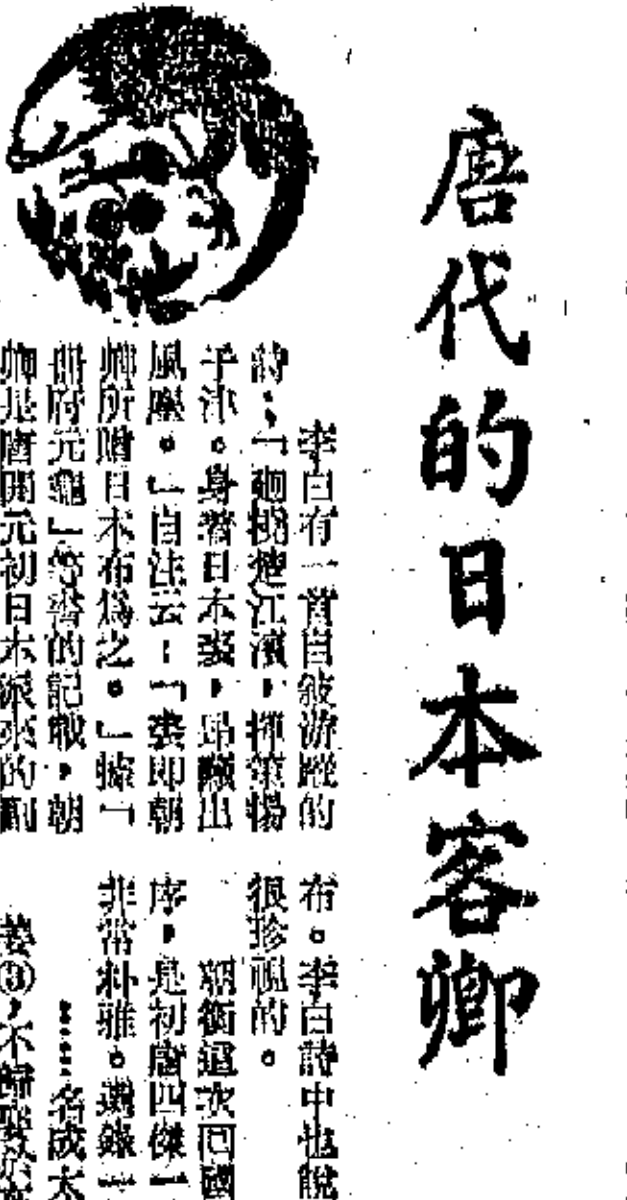 唐代的日本客卿
李白有一首自敍游蹤的
詩：「
子津。身著日本裘，昂藏出
風塵。」自注云：「裘即朝
卿所贈日本布爲之。」據「
册府元龜」等書的記載，朝
卿是唐開元初日本派來的副
布。李白詩中也說
很珍視的。
朝衡這次回國
序，是初唐四傑一
非常朴雅。選錄一
……名成太
③，不歸